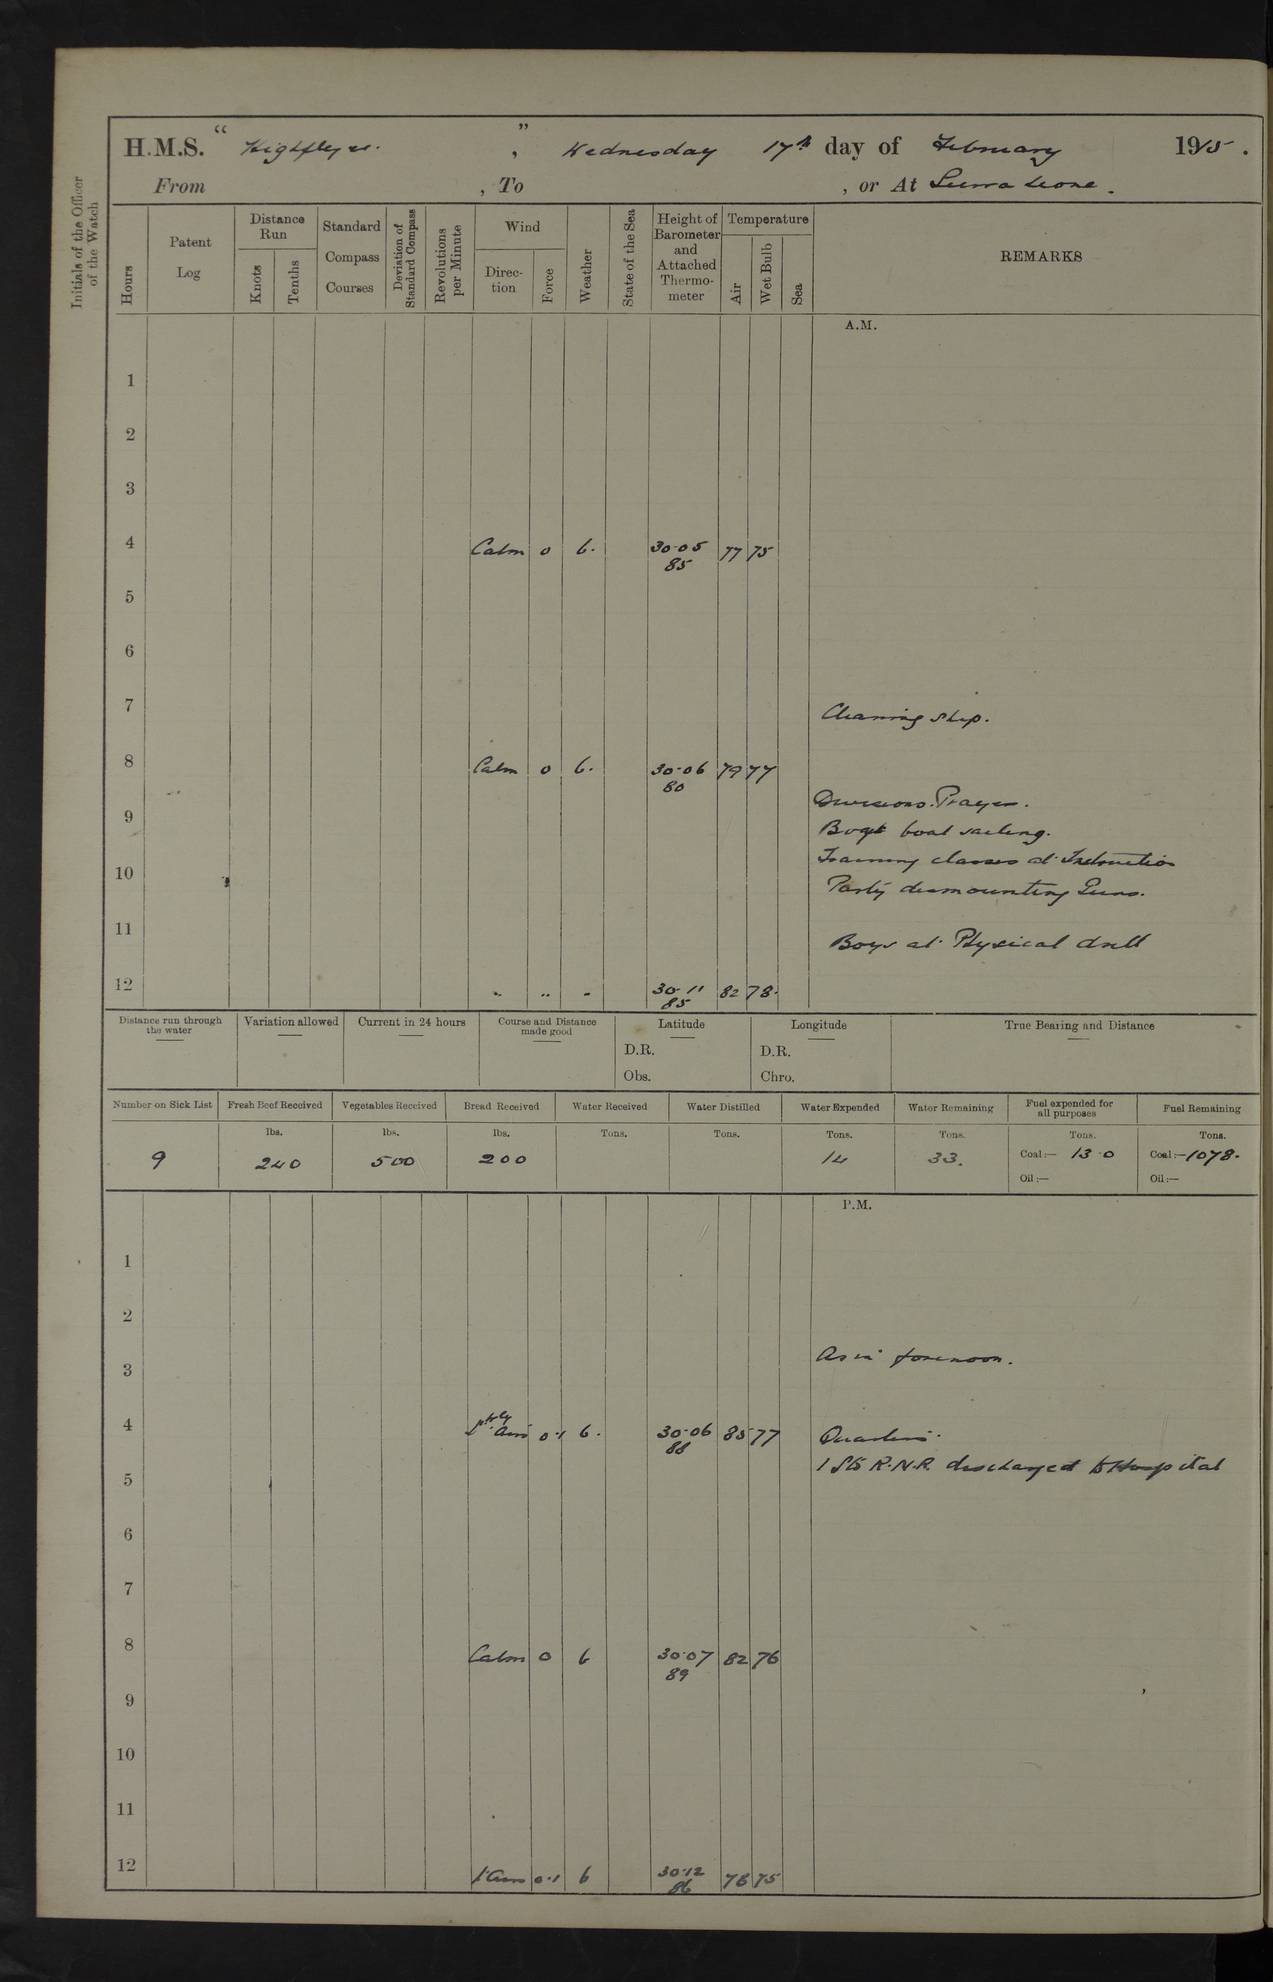 H.M.S. “ Highflyer. ” , Wednesday 17th day of February 1915.
From , To , or At Sierra Leone.
Initials of the Officer of the Watch
Hours
Patent Log
Distance Run
Knots
Tenths
Standard Compass Courses
Deviation of Standard Compass
Revolutions per Minute
Wind
Direc-tion
Force
Weather
State of the Sea
Height of Barometer and Attached Thermo-meter
Temperature
Air
Wet Bulb
Sea
REMARKS
A.M.
1
2
3
4 Calm 0 b. 30.05 77 75
85
5
6
7 Cleaning ship.
8 Calm 0 b. 30.06 79 77
80
Divisions. Prayers.
9 Boys boat sailing.
Training classes at Instruction
10 Party dismounting Guns.
11 Boys at Physical drill
12 " " " 30.11 82 78.
85
Distance run through the water
Variation allowed
Current in 24 hours
Course and Distance made good
Latitude
D.R.
Obs.
Longitude
D.R.
Chro.
True Bearing and Distance
Number on Sick List Fresh Beef Received Vegetables Received Bread Received Water Received Water Distilled Water Expended Water Remaining Fuel expended for all purposes Fuel Remaining
lbs. lbs. lbs. Tons. Tons. Tons. Tons. Tons. Tons.
9 240 500 200 14 33. Coal:— 13.0 Coal:—1078.
Oil:— Oil:—
P.M.
1
2
3 As in forenoon.
4 Lt airs 0.1 b. 30.06 85 77 Quarters.
88
1 Sto R.N.R. discharged to Hospital
5
6
7
8 Calm 0 b 30.07 82 76
89
9
10
11
12 Lt airs 0.1 b 30.12 78 75
86